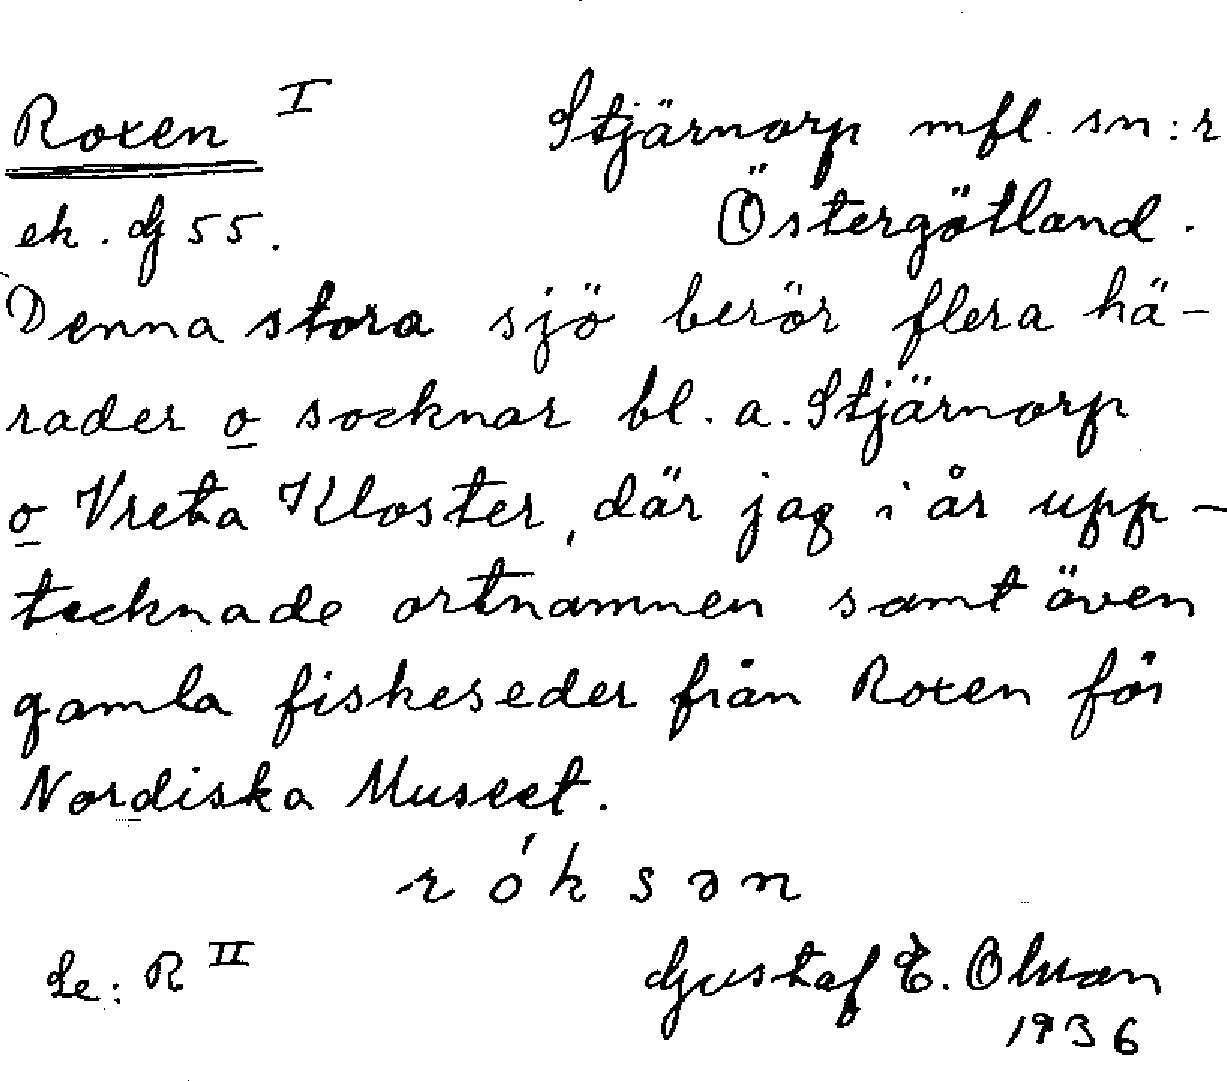 Roxen I Stjärnorp mfl. sn:r
ek. Dj 55. Östergötland.
Denna stora sjö berör flera hä-
rader o socknar bl.a. Stjärnorp
o Vreta Kloster, där jag i år upp-
tecknade ortnamnen samt även
gamla fiskeseder från Roxen för
Nordiska Museet.
róksən
Se: R II Gustaf E.
1936